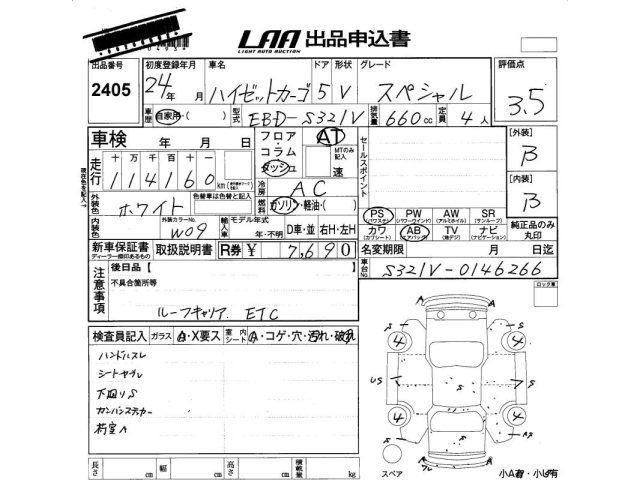 LAA 出品申込書
LIGHT AUTO AUCTION
出品番号 初度登録年月 車名 ドア 形状 グレード 評価点
2405 24年 月 ハイゼットカーゴ 5 V スペシャル 3.5
車歴 自家用・( ) 型式 EBD-S321V 排気量 660cc 定員 4人
車検 年 月 日 フロア・コラム ダッシュ AT MTのみ記入 速 セールスポイント [外装] B
走行 十 万 千 百 十 一
114160 km
現在色を記入→
冷房 AC [内装] B
外装色 ホワイト 色替車は色替と記入 燃料 ガソリン・軽油・( )
PS PW AW SR
(パワステ) (パワーウインド) (アルミホイル) (サンルーフ)
純正品のみ丸印
内装色 外装カラーNo. W09 輸入車 モデル年式 年・不明 D車・並 右H・左H
カワ AB TV ナビ
(カワシート) (エアバッグ) (地デジ) (ナビゲーション)
新車保証書 取扱説明書 R券 ¥ 7,690 名変期限 月 日迄
ディーラー捺印あるもの
車台No. S321V-0146266
注意事項 後日品【 】
不具合箇所等
ルーフキャリア ETC
ロック車
検査員記入 ガラス A・X要ス 室内シート A・コゲ・穴・汚れ・破れ
ハンドルスレ
シートヤブレ
下廻りS
カンバンステッカー
荷室A
A A
S S
4 4
US S S
4 4
S
A
スペア 小A有・小U有
長さ cm 幅 cm 高さ cm 積載量 kg